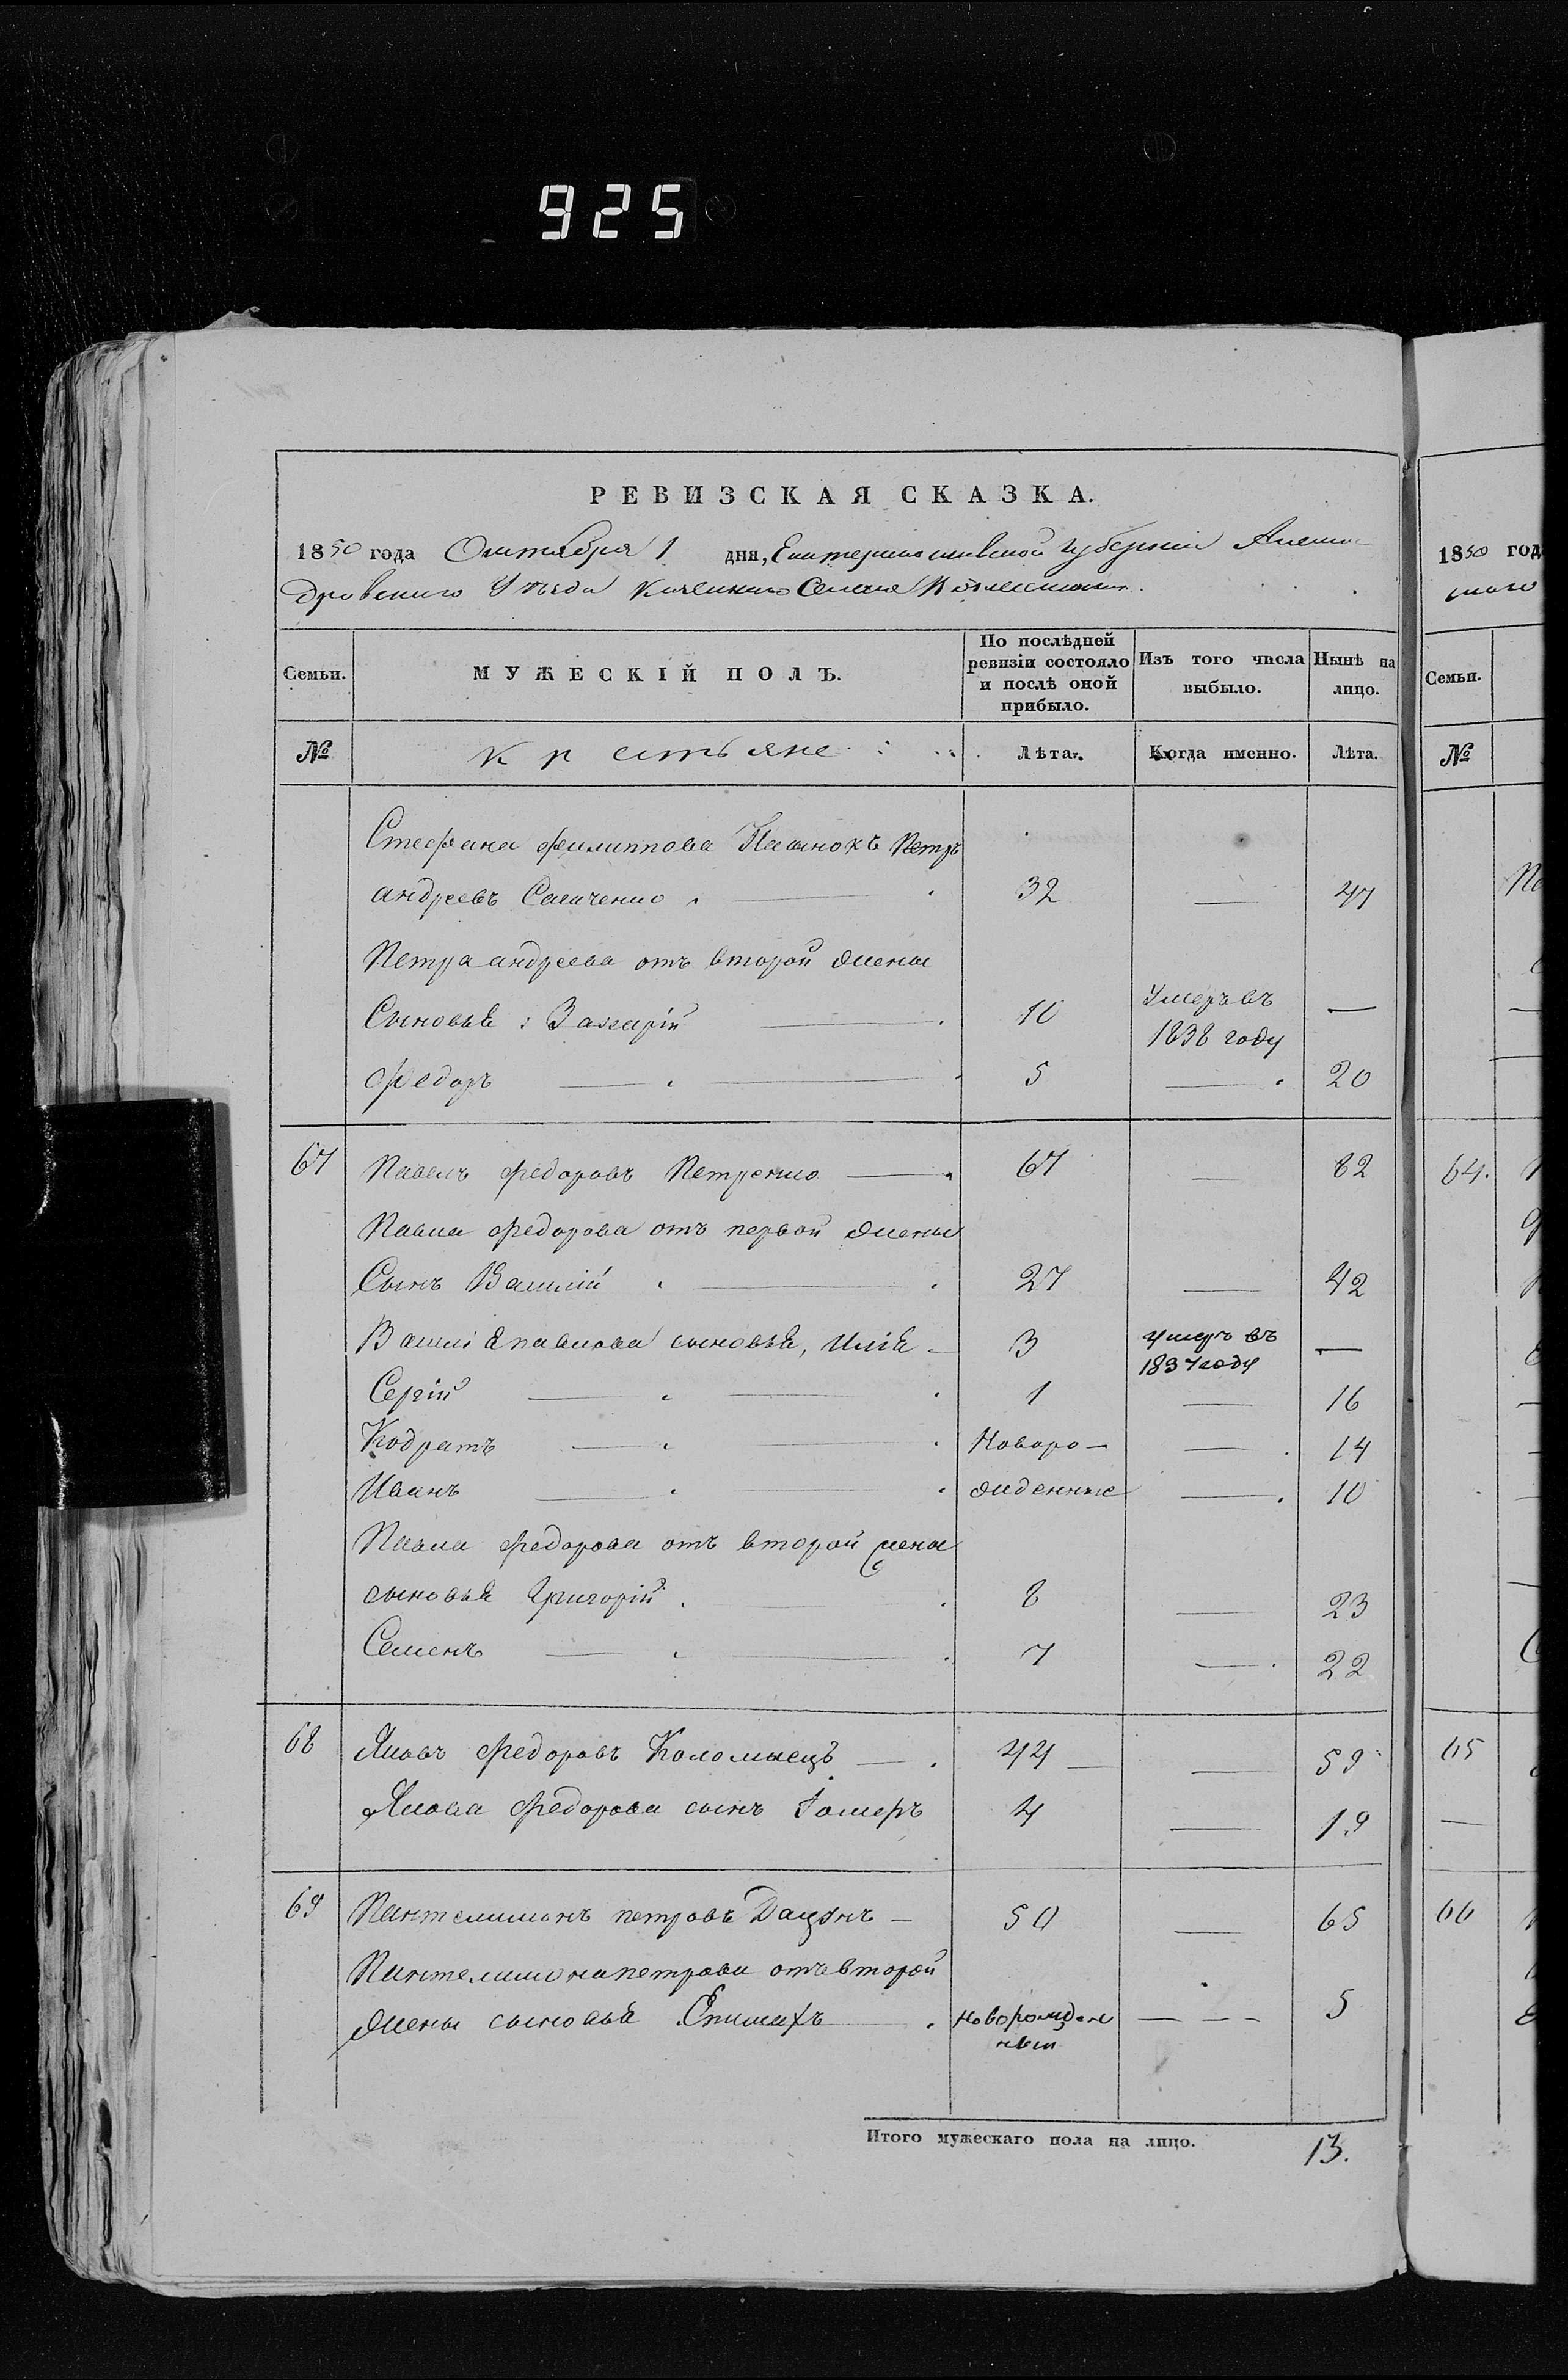 925
РЕВИЗСКАЯ СКАЗКА.
1850 года Октября 1 дня, Екатеринославской Губернiи Алексан
дровскаго Уѣзда Казеннаго Селенiя
Семьи. МУЖЕСКІЙ ПОЛЪ. По послѣдней ревизіи состояло и послѣ оной прибыло. Изъ того числа выбыло. Нынѣ на лицо.
№ Крестьяне Лѣта. Когда именно. Лѣта.
Стефана Филиппова Пасынокъ Петръ
андреевъ 32 — 47
Петра андреева отъ второй жены
Сыновья: Захарій 10 Умеръ въ 1838 году —
Федоръ 5 — 20
67 Павелъ Федоровъ Петренко 67 — 82
Павла Федорова отъ первой жены
Сынъ Василій 27 — 42
Василія павлова сыновья, Илія 3 умеръ въ 1837 году —
Сергій 1 — 16
Кодратъ Новоро — 14
Иванъ жденные — 10
Павла Федорова отъ второй жены
сыновья Григорій 8 — 23
Семенъ 7 — 22
68 Яковъ Федоровъ Коломыецъ 44 — 59
Якова Федорова сынъ 4 — 19
69 Пантелимонъ петровъ Дацунъ 50 — 65
Пантелимона петрова отъ второй
жены сыновья Епимахъ новорожден ный — 5
Итого мужескаго пола на лицо. 13.
1850 год
скаго
Семьи.
№
64.
65
66